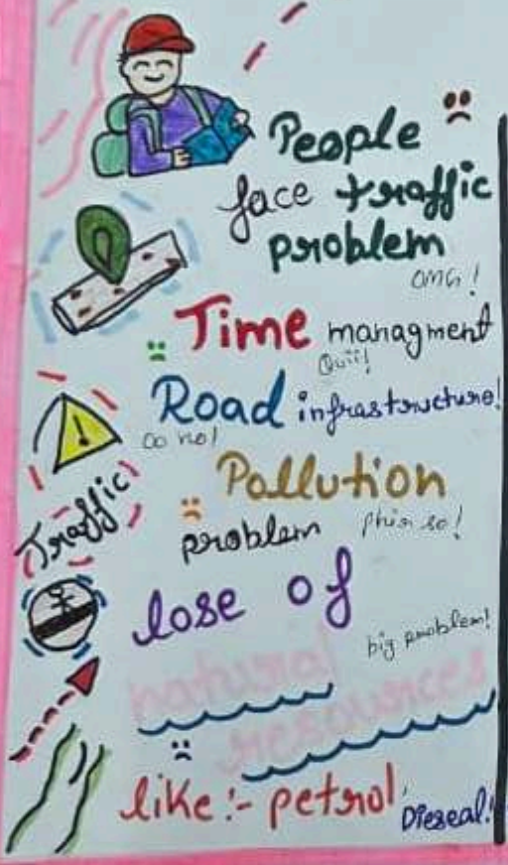 People
face traffic
problem
OMG!
Time managment
Quii!
Road infrastructure!
oo no!
Pollution
Traffic
problem phir se!
lose of
big problem!
natural
resources
like :- petrol, Dieseal!